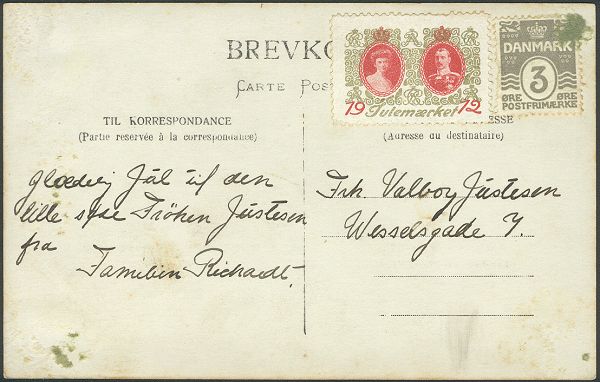 BREVKO
CARTE POS
19 Julemærket 12
DANMARK
3
ØRE ØRE
POSTFRIMÆRKE
TIL KORRESPONDANCE
(Partie reservée à la correspondance)
ESSE
(Adresse du destinataire)
Glædelig Jul til den
lille søde Fröken Justesen
fra
Familien Richardt.
Frk. Valborg Justesen
Wesselsgade 7.